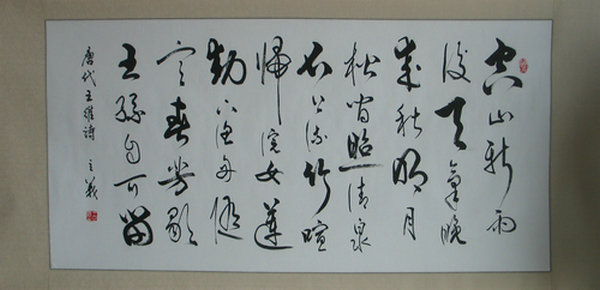 空山新雨
後天氣晚
來秋明月
松間照清泉
石上流竹喧
歸浣女蓮
動下漁舟隨
意春芳歇
王孫自可留
唐代王維詩